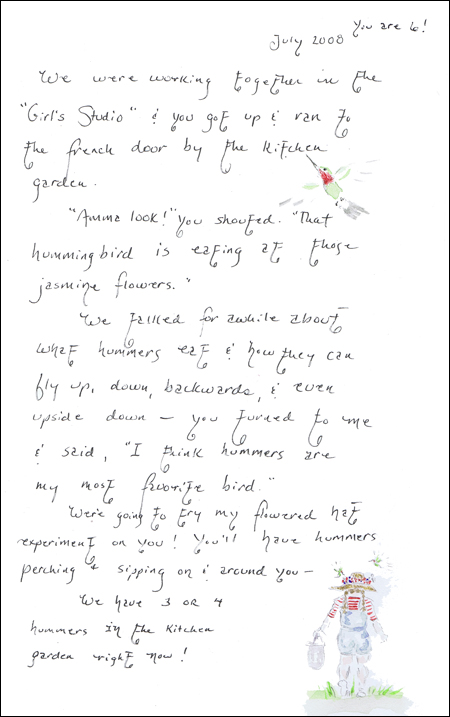 You are 6!
July 2008
We were working together in the
"Girl's Studio" & you got up & ran to
the french door by the kitchen
garden.
"Amma look!" you shouted. "That
hummingbird is eating at those
jasmine flowers."
We talked for awhile about
what hummers eat & how they can
fly up, down, backwards, & even
upside down — you turned to me
& said, "I think hummers are
my most favorite bird."
We're going to try my flowered hat
experiment on you! You'll have hummers
perching & sipping on & around you —
We have 3 or 4
hummers in the kitchen
garden right now!